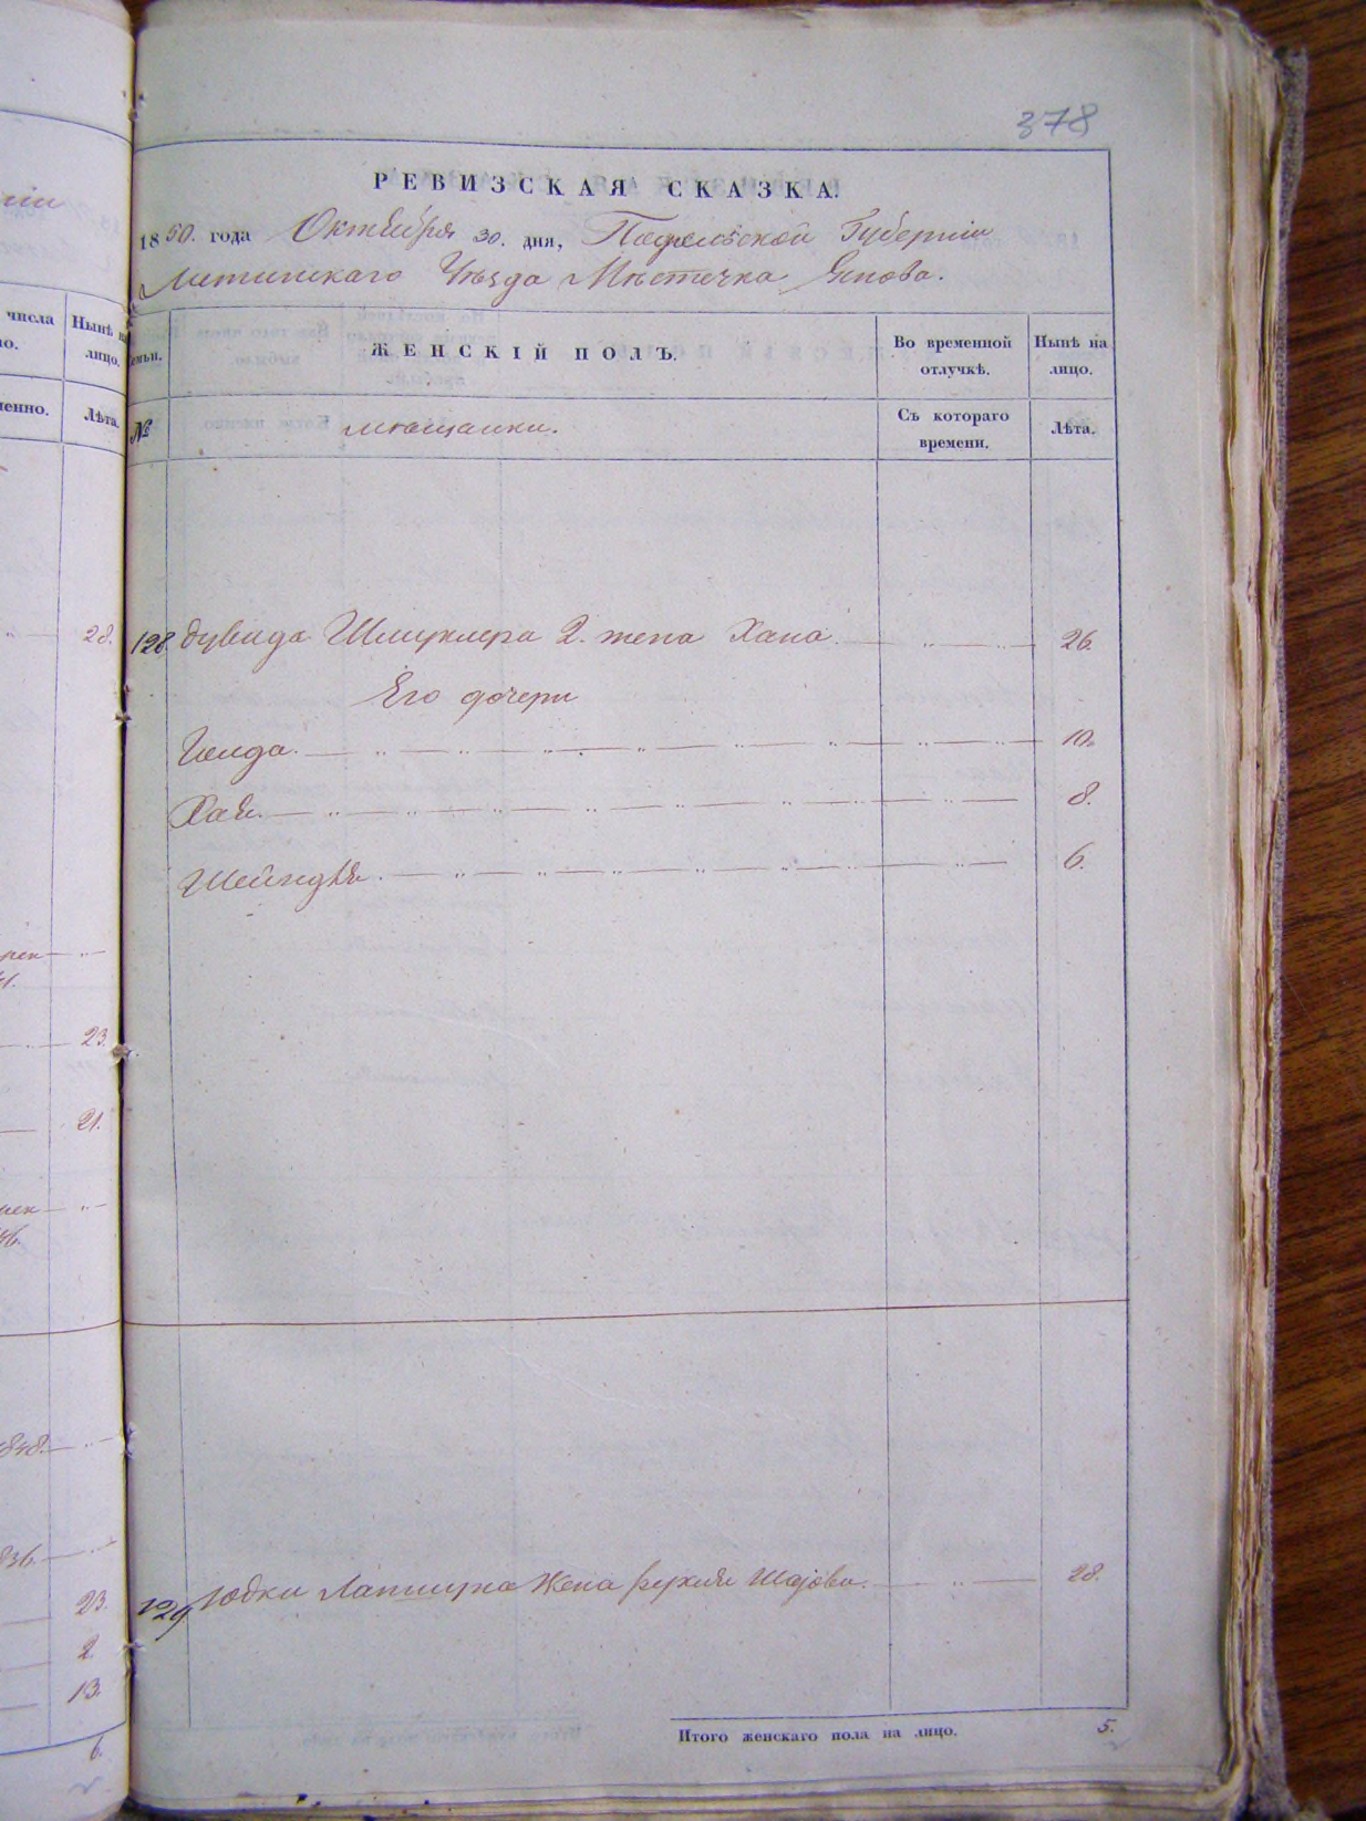 378
РЕВИЗСКАЯ СКАЗКА.
1850. года Октября 30. дня, Подольской Губерніи
Литинскаго Уѣзда Мѣстечка Янова.
числа
Нынѣ на лицо.
Лѣта.
семьи.
ЖЕНСКІЙ ПОЛЪ.
Во временной отлучкѣ.
Нынѣ на лицо.
№
мѣщанки.
Съ котораго времени.
Лѣта.
28.
128. Дувида 2. жена Хана. 26.
Его дочери
Голда. 10.
Хая. 8.
Шейндля. 6.
23.
21.
46.
1848.
836.
23.
2.
13.
6.
129 Юдки Жена Рухля 28.
Итого женскаго пола на лицо. 5.